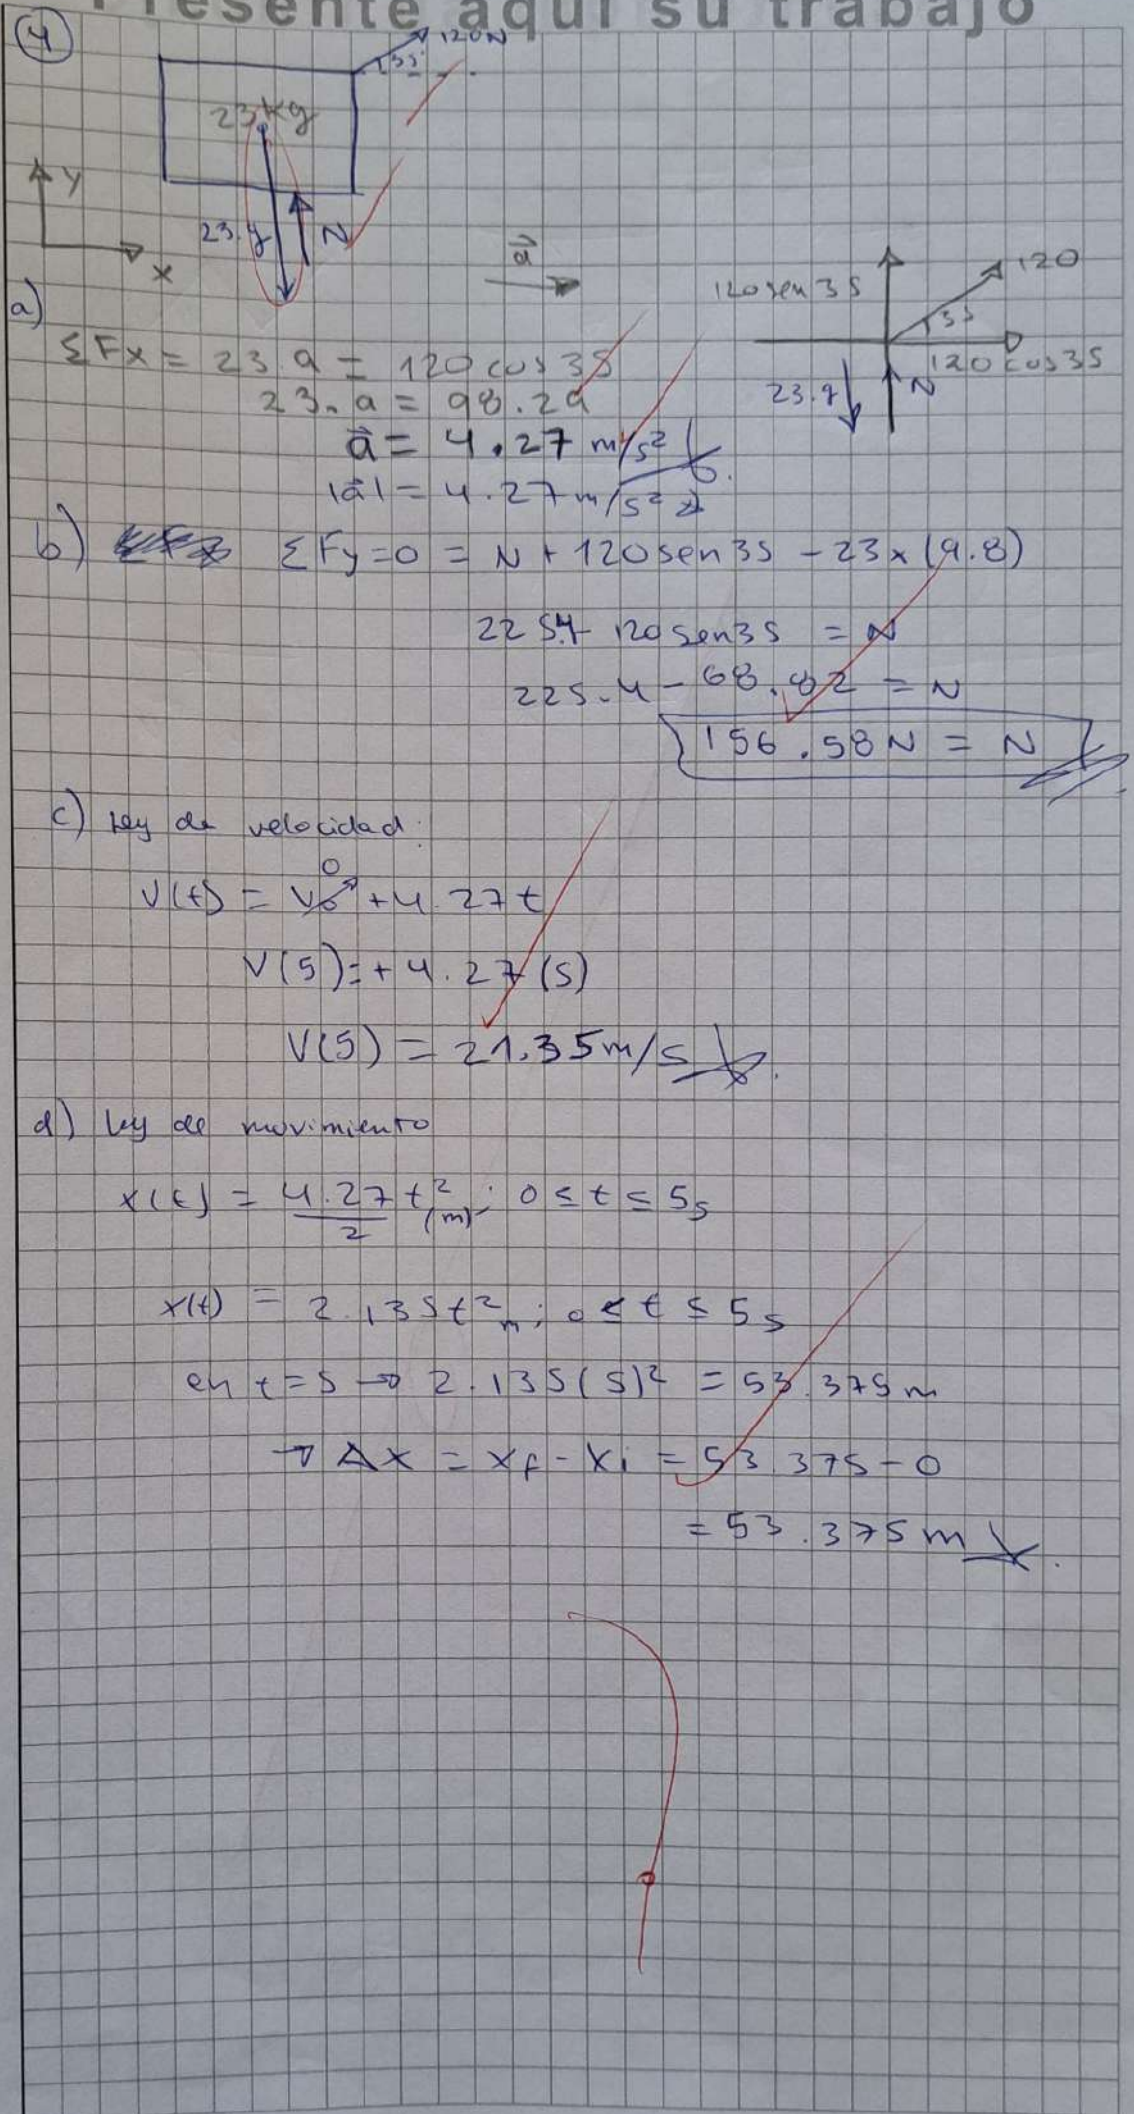 Presente aquí su trabajo
4
120N
35°
23 kg
y
23.g
N
x
a⃗
120 sen 35
120
35
120 cos 35
23.g
N
a)
ΣFx = 23.a = 120 cos 35
23.a = 98.29
a⃗ = 4.27 m/s²
|a⃗| = 4.27 m/s²
b) ΣFy = 0 = N + 120 sen 35 - 23 x (9.8)
225.4 - 120 sen 35 = N
225.4 - 68.82 = N
156.58 N = N
c) Ley de velocidad:
V(t) = V0 → 0 + 4.27 t
V(5) = + 4.27 (5)
V(5) = 21.35 m/s
d) Ley de movimiento
x(t) = 4.27/2 t² (m); 0 ≤ t ≤ 5s
x(t) = 2.135 t² m; 0 ≤ t ≤ 5s
en t = 5 → 2.135 (5)² = 53.375 m
→ Δx = xf - xi = 53.375 - 0
= 53.375 m